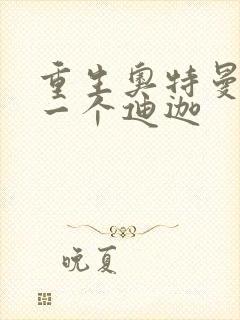 重生奥特曼
一个迪迦
晚夏